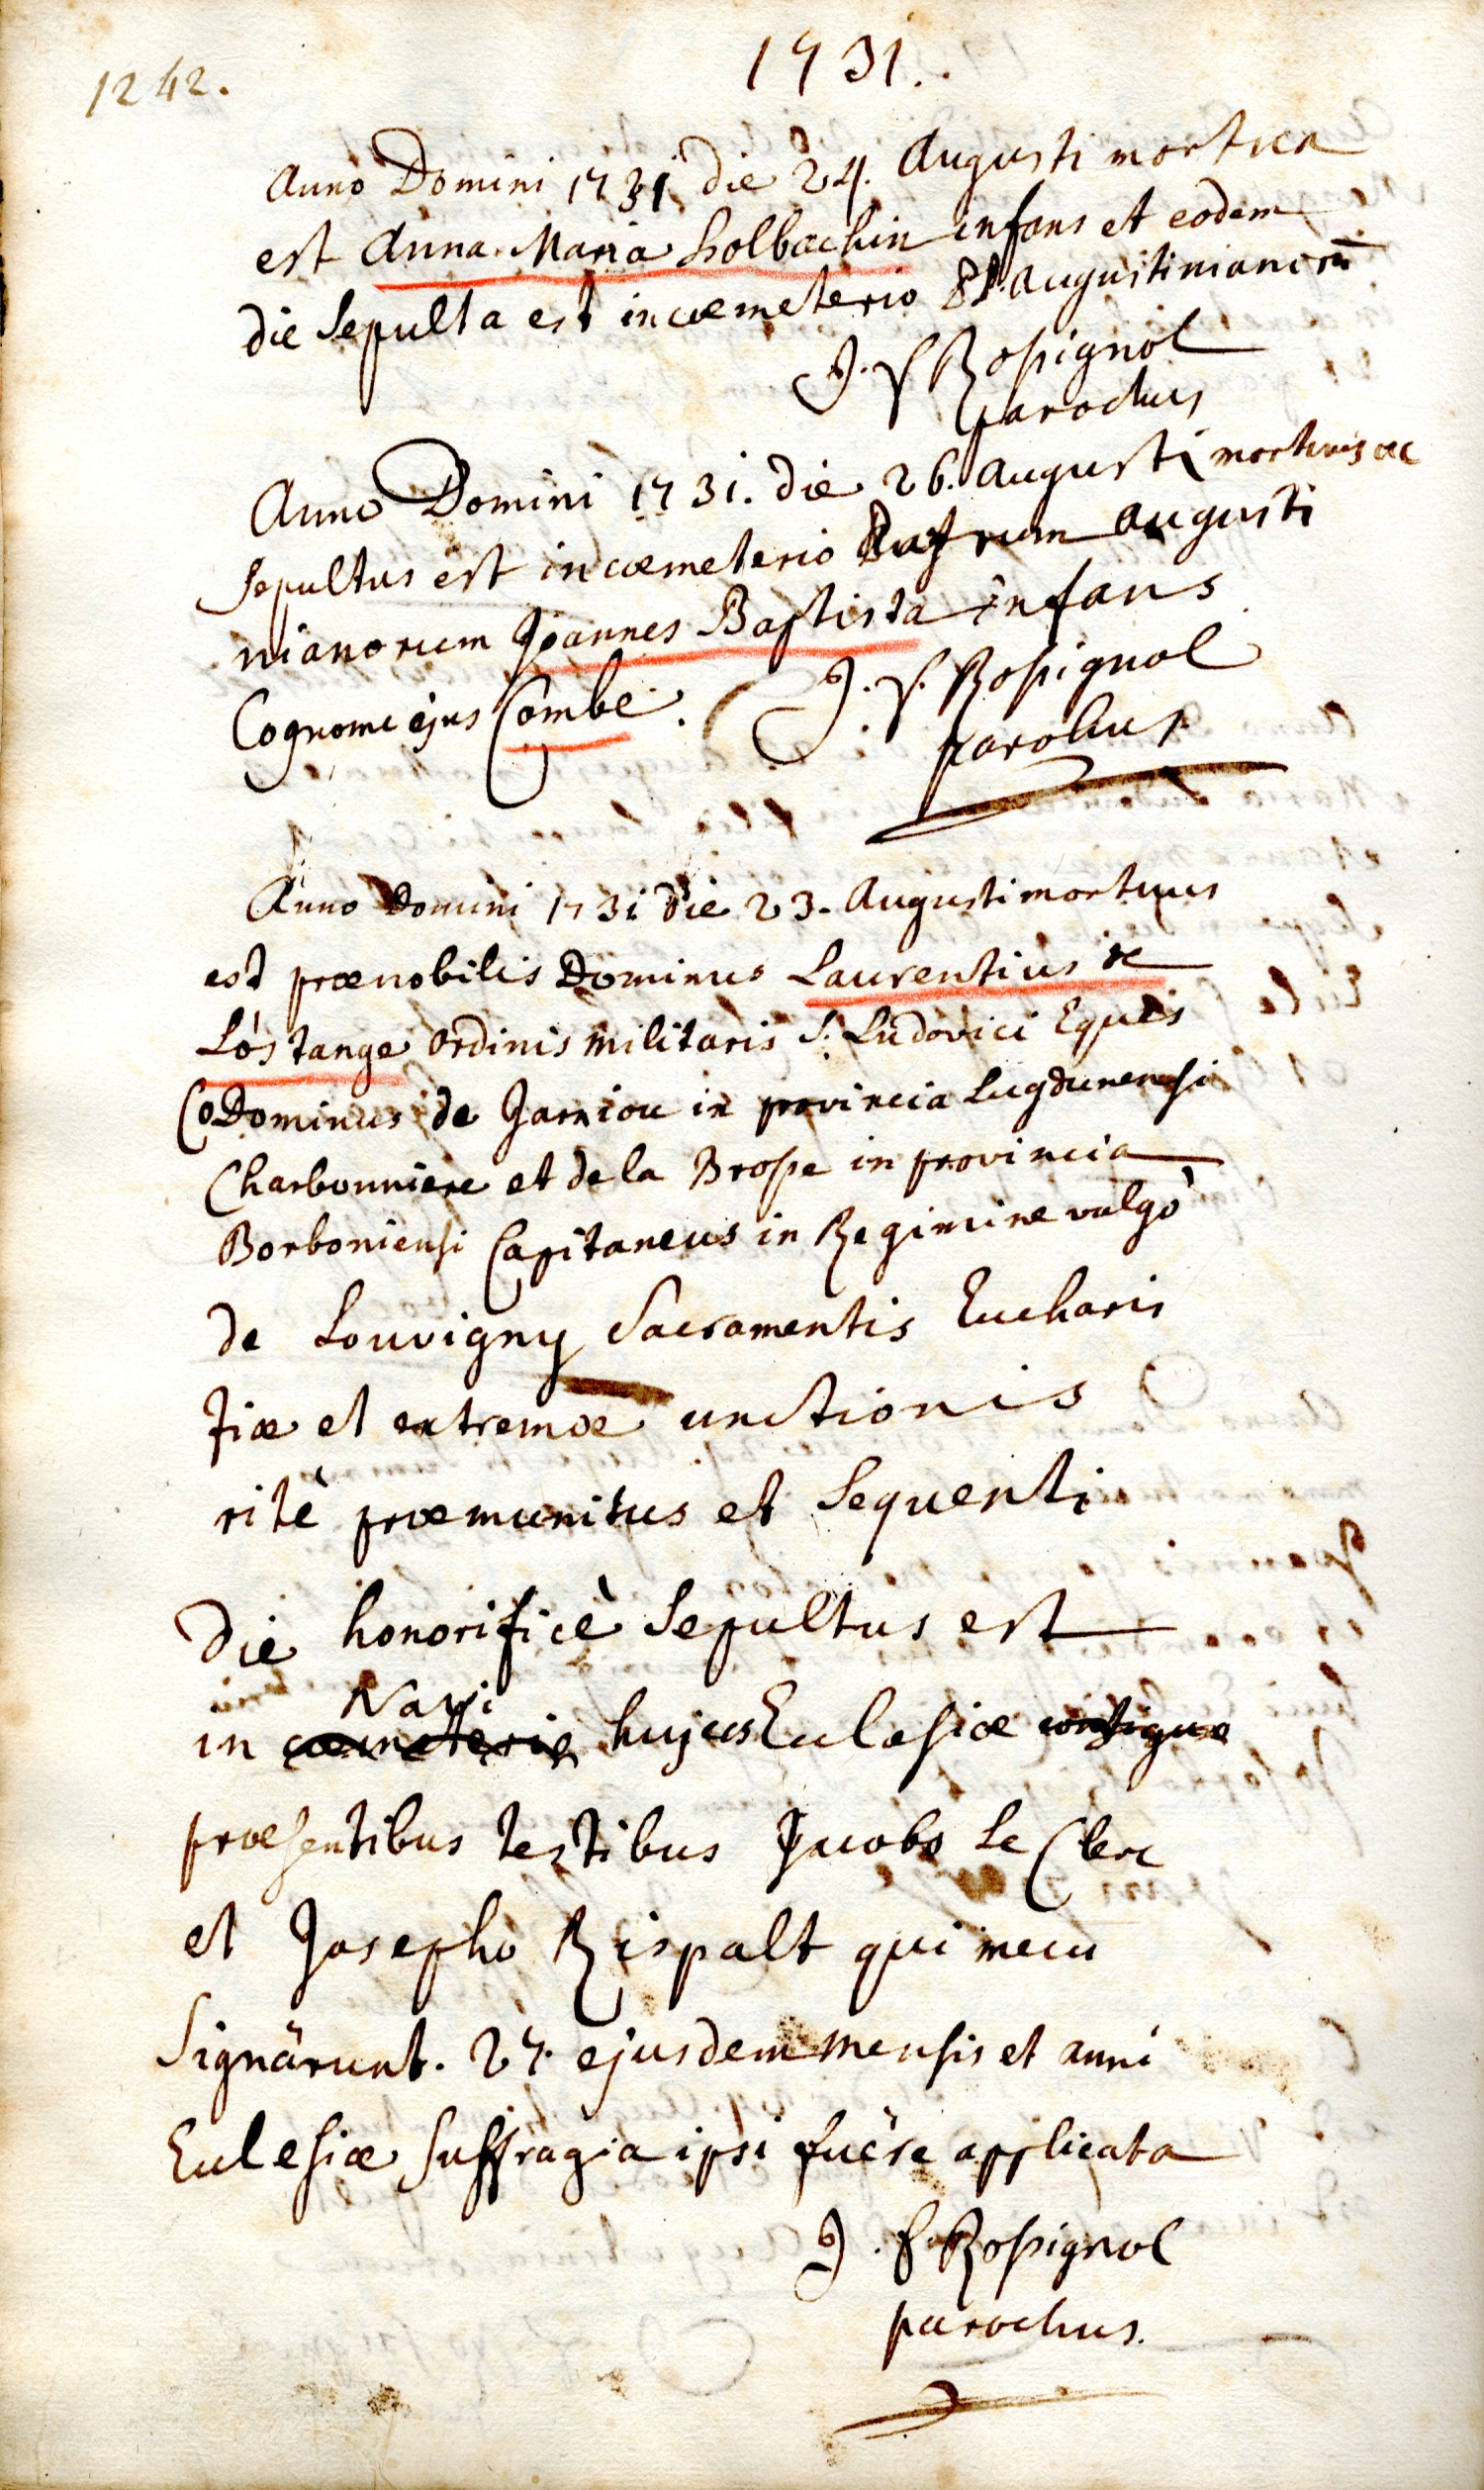 1242.
1731.
Anno Domini 1731 die 24. Augusti mortua
est Anna Maria holbachin infans et eodem
die Sepulta est in cœmeterio PP. Augustinianorū
J. F. Roßignol
parochus
Anno Domini 1731. die 26. augusti mortuus ac
Sepultus est in cœmeterio Patrum augusti
nianorum Joannes Baptista infans
Cognome ejus Combe. J. F. Roßignol
parochus
Anno Domini 1731 die 23. Augusti mortuus
est prænobilis Dominus Laurentius de
Lóstange ordinis militaris S. Ludovici Eques
CoDominus de Jarniou in provincia Lugdunensi
Charbonniere et de la Broße in provincia
Borboniensi Capitaneus in Regimine vulgò
de Louvigny Sacramentis Eucharis
tiæ et extremæ unctionis
ritè præmunitus et Sequenti
die honorificè Sepultus est
Navi
in cœmeterio hujus Eclesiæ contiguo
præsentibus testibus Jacobo Le Clerc
et Josepho Rispalt qui mecū
Signârunt. 27. ejusdem mensis et anni
Eclesiæ Suffragia ipsi fuêre applicata
J. F. Roßignol
parochus.